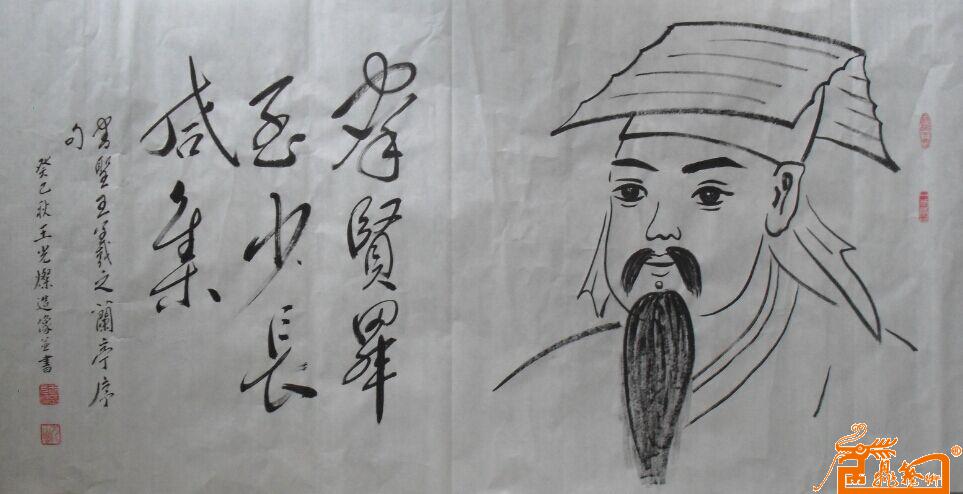 群賢畢
至少長
咸集
書聖王羲之蘭亭序
句
癸巳秋王光燦造像並書